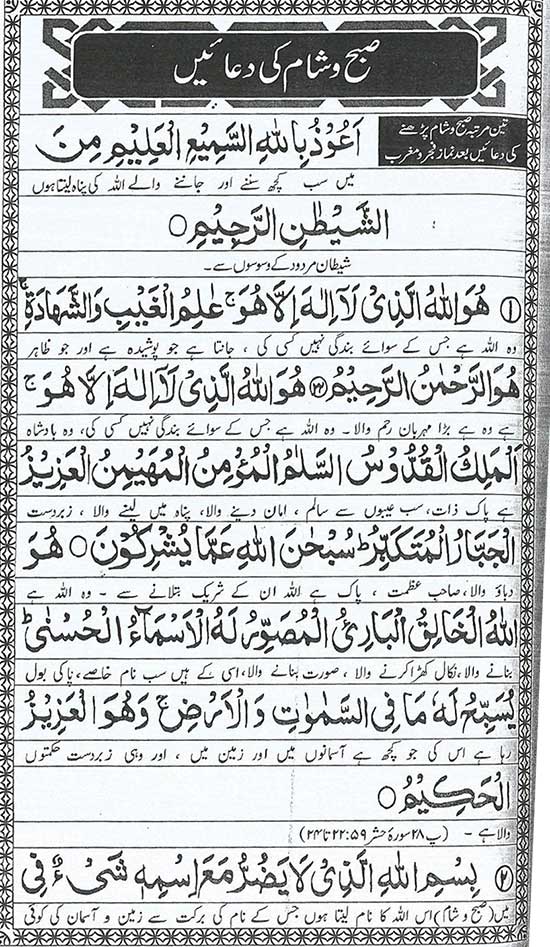 صبح و شام کی دعائیں
تین مرتبہ صبح و شام پڑھنے
کی دعائیں بعد نماز فجر و مغرب
اَعُوْذُ بِاللّٰهِ السَّمِيْعِ الْعَلِيْمِ مِنَ
میں سب کچھ سننے اور جاننے والے اللہ کی پناہ لیتا ہوں
الشَّيْطٰنِ الرَّجِيْمِ ○
شیطان مردود کے وسوسوں سے۔
۱ هُوَ اللّٰهُ الَّذِيْ لَآ اِلٰهَ اِلَّا هُوَ ج عٰلِمُ الْغَيْبِ وَالشَّهَادَةِ ج
وہ اللہ ہے جس کے سوائے بندگی نہیں کسی کی ، جانتا ہے جو پوشیدہ ہے اور جو ظاہر
هُوَ الرَّحْمٰنُ الرَّحِيْمُ ۲۲ هُوَ اللّٰهُ الَّذِيْ لَآ اِلٰهَ اِلَّا هُوَ ج
ہے وہ ہے بڑا مہربان رحم والا۔ وہ اللہ ہے جس کے سوائے بندگی نہیں کسی کی، وہ بادشاہ
اَلْمَلِكُ الْقُدُّوْسُ السَّلٰمُ الْمُؤْمِنُ الْمُهَيْمِنُ الْعَزِيْزُ
ہے پاک ذات، سب عیبوں سے سالم ، امان دینے والا، پناہ میں لینے والا ، زبردست
الْجَبَّارُ الْمُتَكَبِّرُ ط سُبْحٰنَ اللّٰهِ عَمَّا يُشْرِكُوْنَ ○ هُوَ
دباؤ والا، صاحب عظمت ، پاک ہے اللہ ان کے شریک بتلانے سے ۔ وہ اللہ ہے
اللّٰهُ الْخَالِقُ الْبَارِئُ الْمُصَوِّرُ لَهُ الْاَسْمَآءُ الْحُسْنٰى ط
بنانے والا، نکال کھڑا کرنے والا ، صورت بنانے والا، اسی کے ہیں سب نام خاصے، پاکی بول
يُسَبِّحُ لَهٗ مَا فِي السَّمٰوٰتِ وَالْاَرْضِ ج وَهُوَ الْعَزِيْزُ
رہا ہے اس کی جو کچھ ہے آسمانوں میں اور زمین میں ، اور وہی زبردست حکمتوں
الْحَكِيْمُ ○
والا ہے ۔ (پ ۲۸ سورۂ حشر ۵۹:۲۲ تا ۲۴)
۲ بِسْمِ اللّٰهِ الَّذِيْ لَا يَضُرُّ مَعَ اسْمِهٖ شَيْءٌ فِي
میں (صبح و شام) اس اللہ کا نام لیتا ہوں جس کے نام کی برکت سے زمین و آسمان کی کوئی